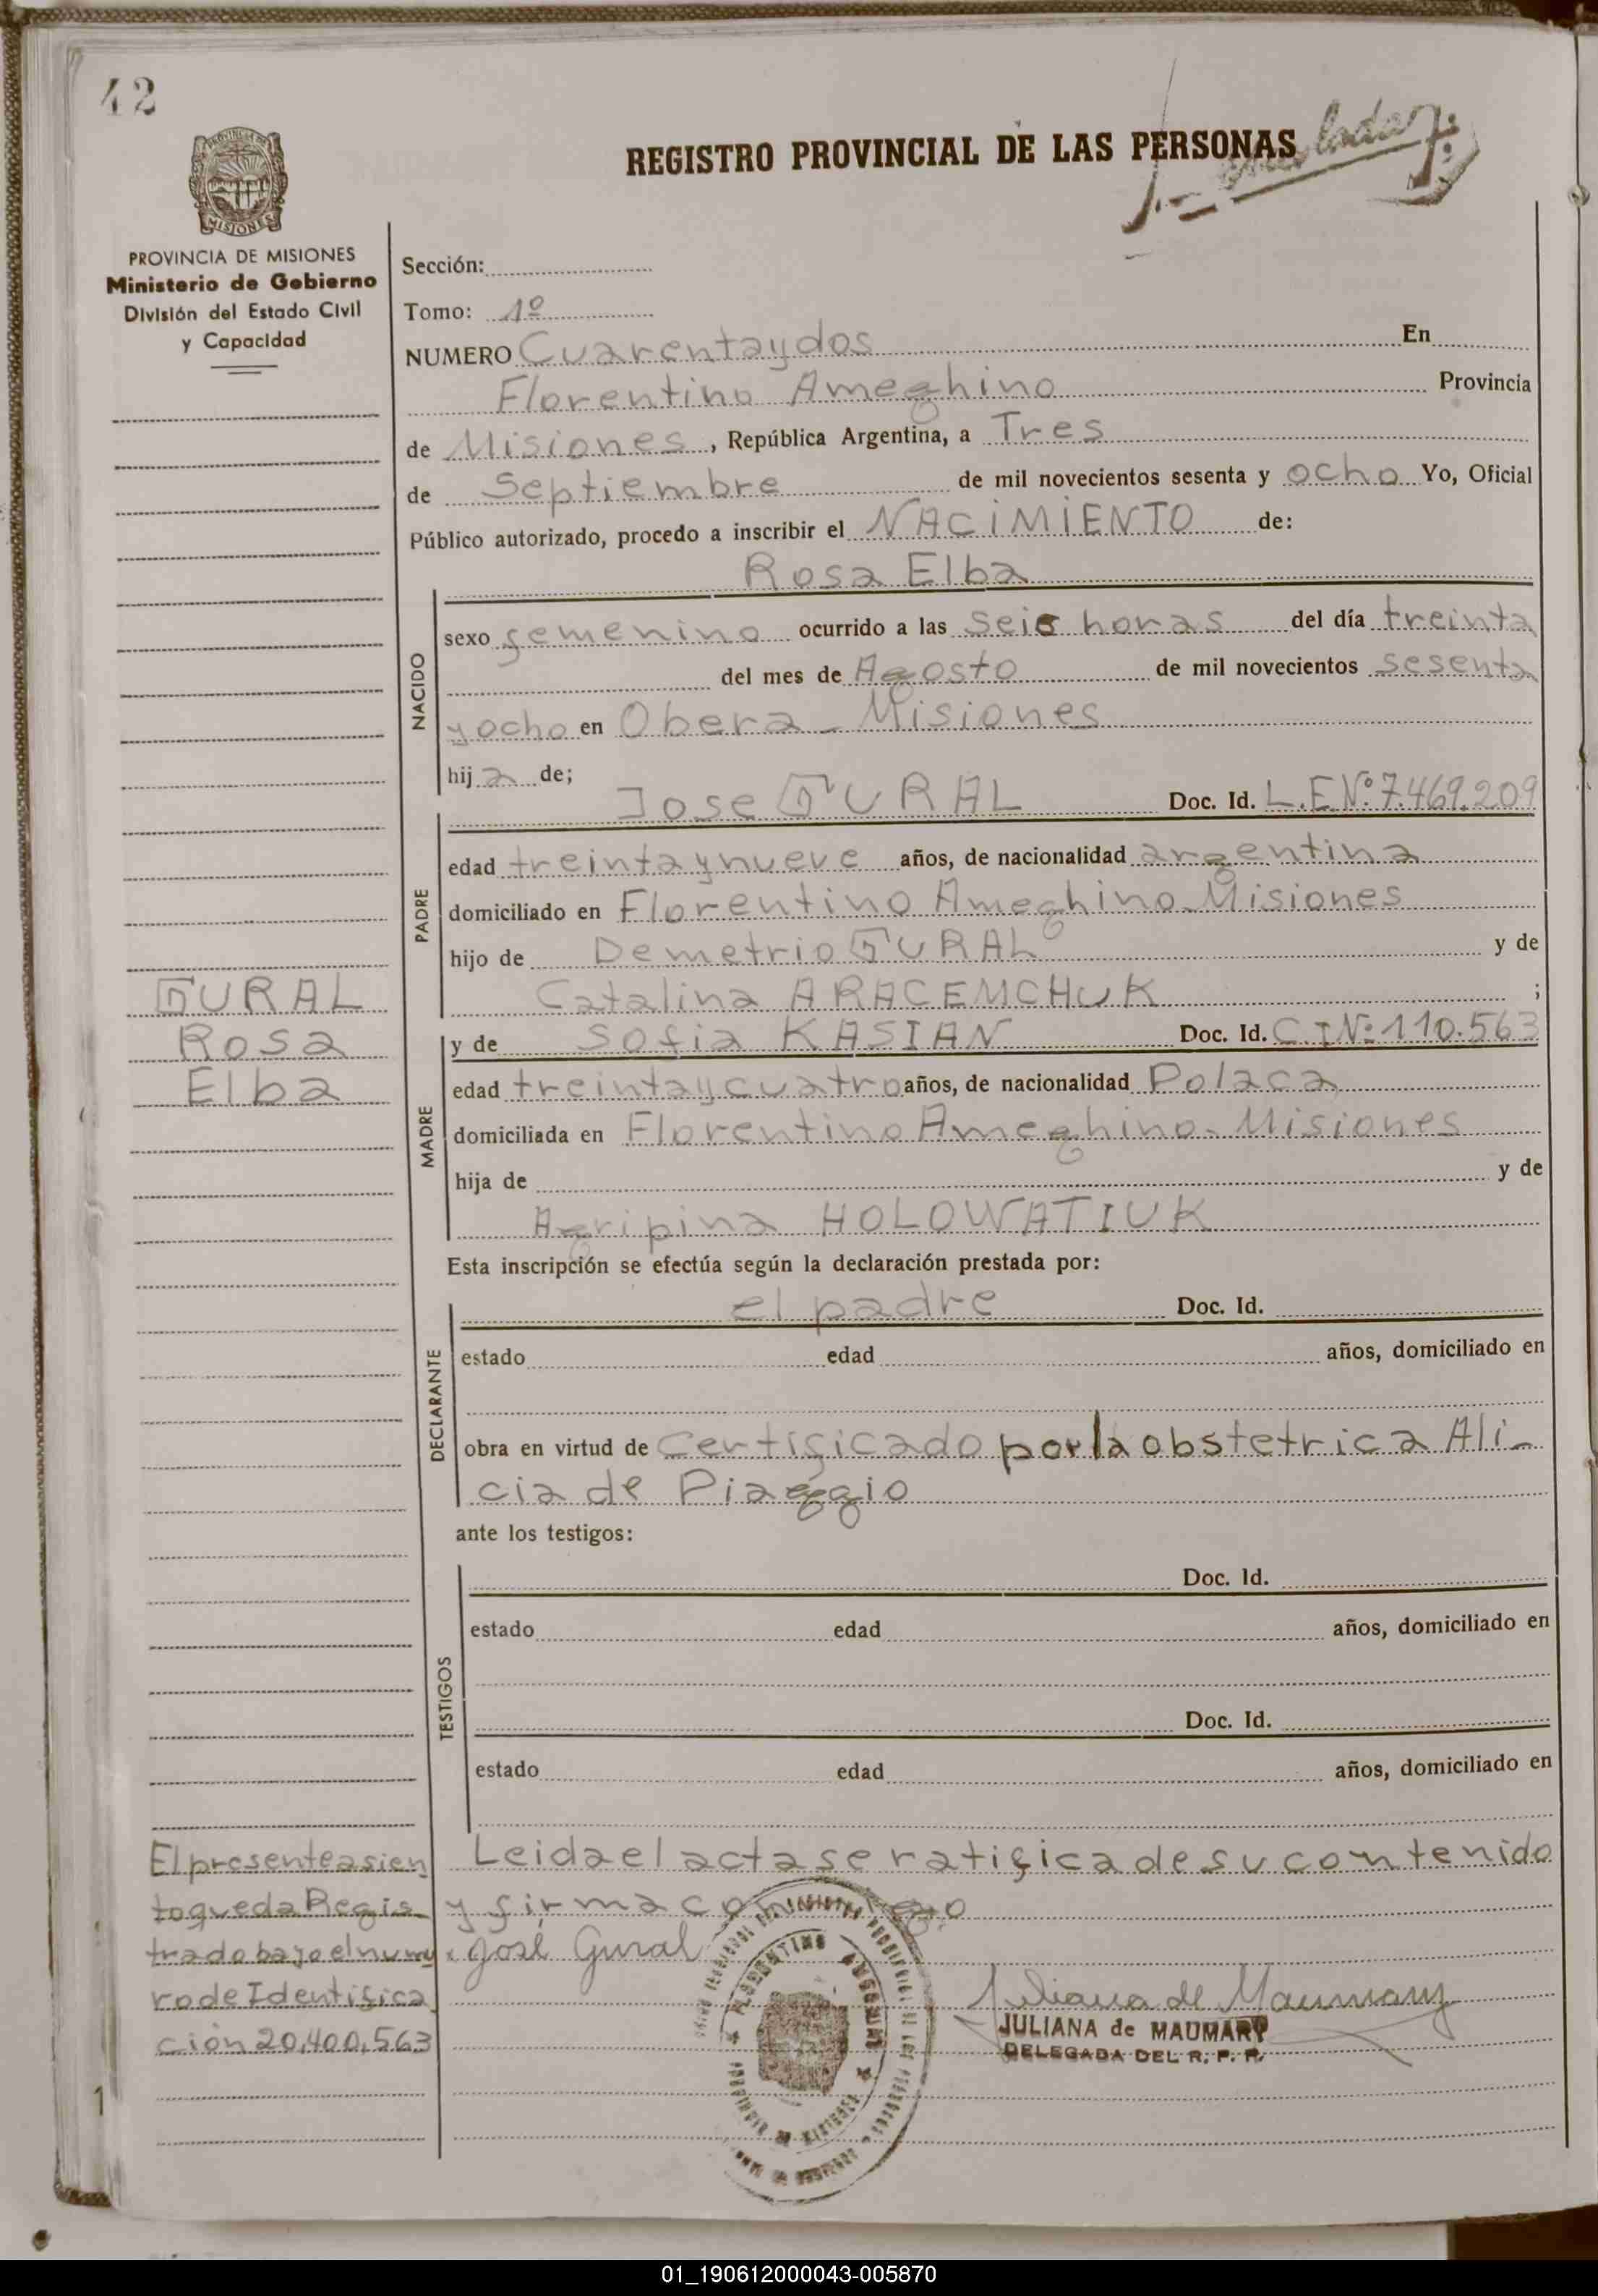 42
REGISTRO PROVINCIAL DE LAS PERSONAS
PROVINCIA DE MISIONES
Ministerio de Gobierno
División del Estado Civil
y Capacidad
Sección:
Tomo: 1º
NUMERO Cuarentaydos En
Florentino Ameghino Provincia
de Misiones, República Argentina, a Tres
de Septiembre de mil novecientos sesenta y ocho Yo, Oficial
Público autorizado, procedo a inscribir el NACIMIENTO de:
Rosa Elba
NACIDO
sexo femenino ocurrido a las seis horas del día treinta
del mes de Agosto de mil novecientos sesenta
y ocho en Obera - Misiones
hija de;
PADRE
Jose GURAL Doc. Id. L.E.Nº 7.469.209
edad treintaynueve años, de nacionalidad argentina
domiciliado en Florentino Ameghino-Misiones
hijo de Demetrio GURAL y de
Catalina ARACEMCHUK ;
GURAL
Rosa
Elba
MADRE
y de Sofia KASIAN Doc. Id. C.I Nº 110.563
edad treintaycuatro años, de nacionalidad Polaca
domiciliada en Florentino Ameghino-Misiones
hija de y de
Agripina HOLOWATIUK
Esta inscripción se efectúa según la declaración prestada por:
DECLARANTE
el padre Doc. Id.
estado edad años, domiciliado en
obra en virtud de certificado por la obstetrica Ali-
cia de Piaggio
ante los testigos:
TESTIGOS
Doc. Id.
estado edad años, domiciliado en
Doc. Id.
estado edad años, domiciliado en
El presente asien
to queda Regis-
trado bajo el nume
ro de Identifica
ción 20,400,563
Leida el acta se ratifica de su contenido
y firma conmigo
José Gural
Juliana de Maumary
JULIANA de MAUMARY
DELEGADA DEL R. P. P.
FLORENTINO AMEGHINO
01_190612000043-005870